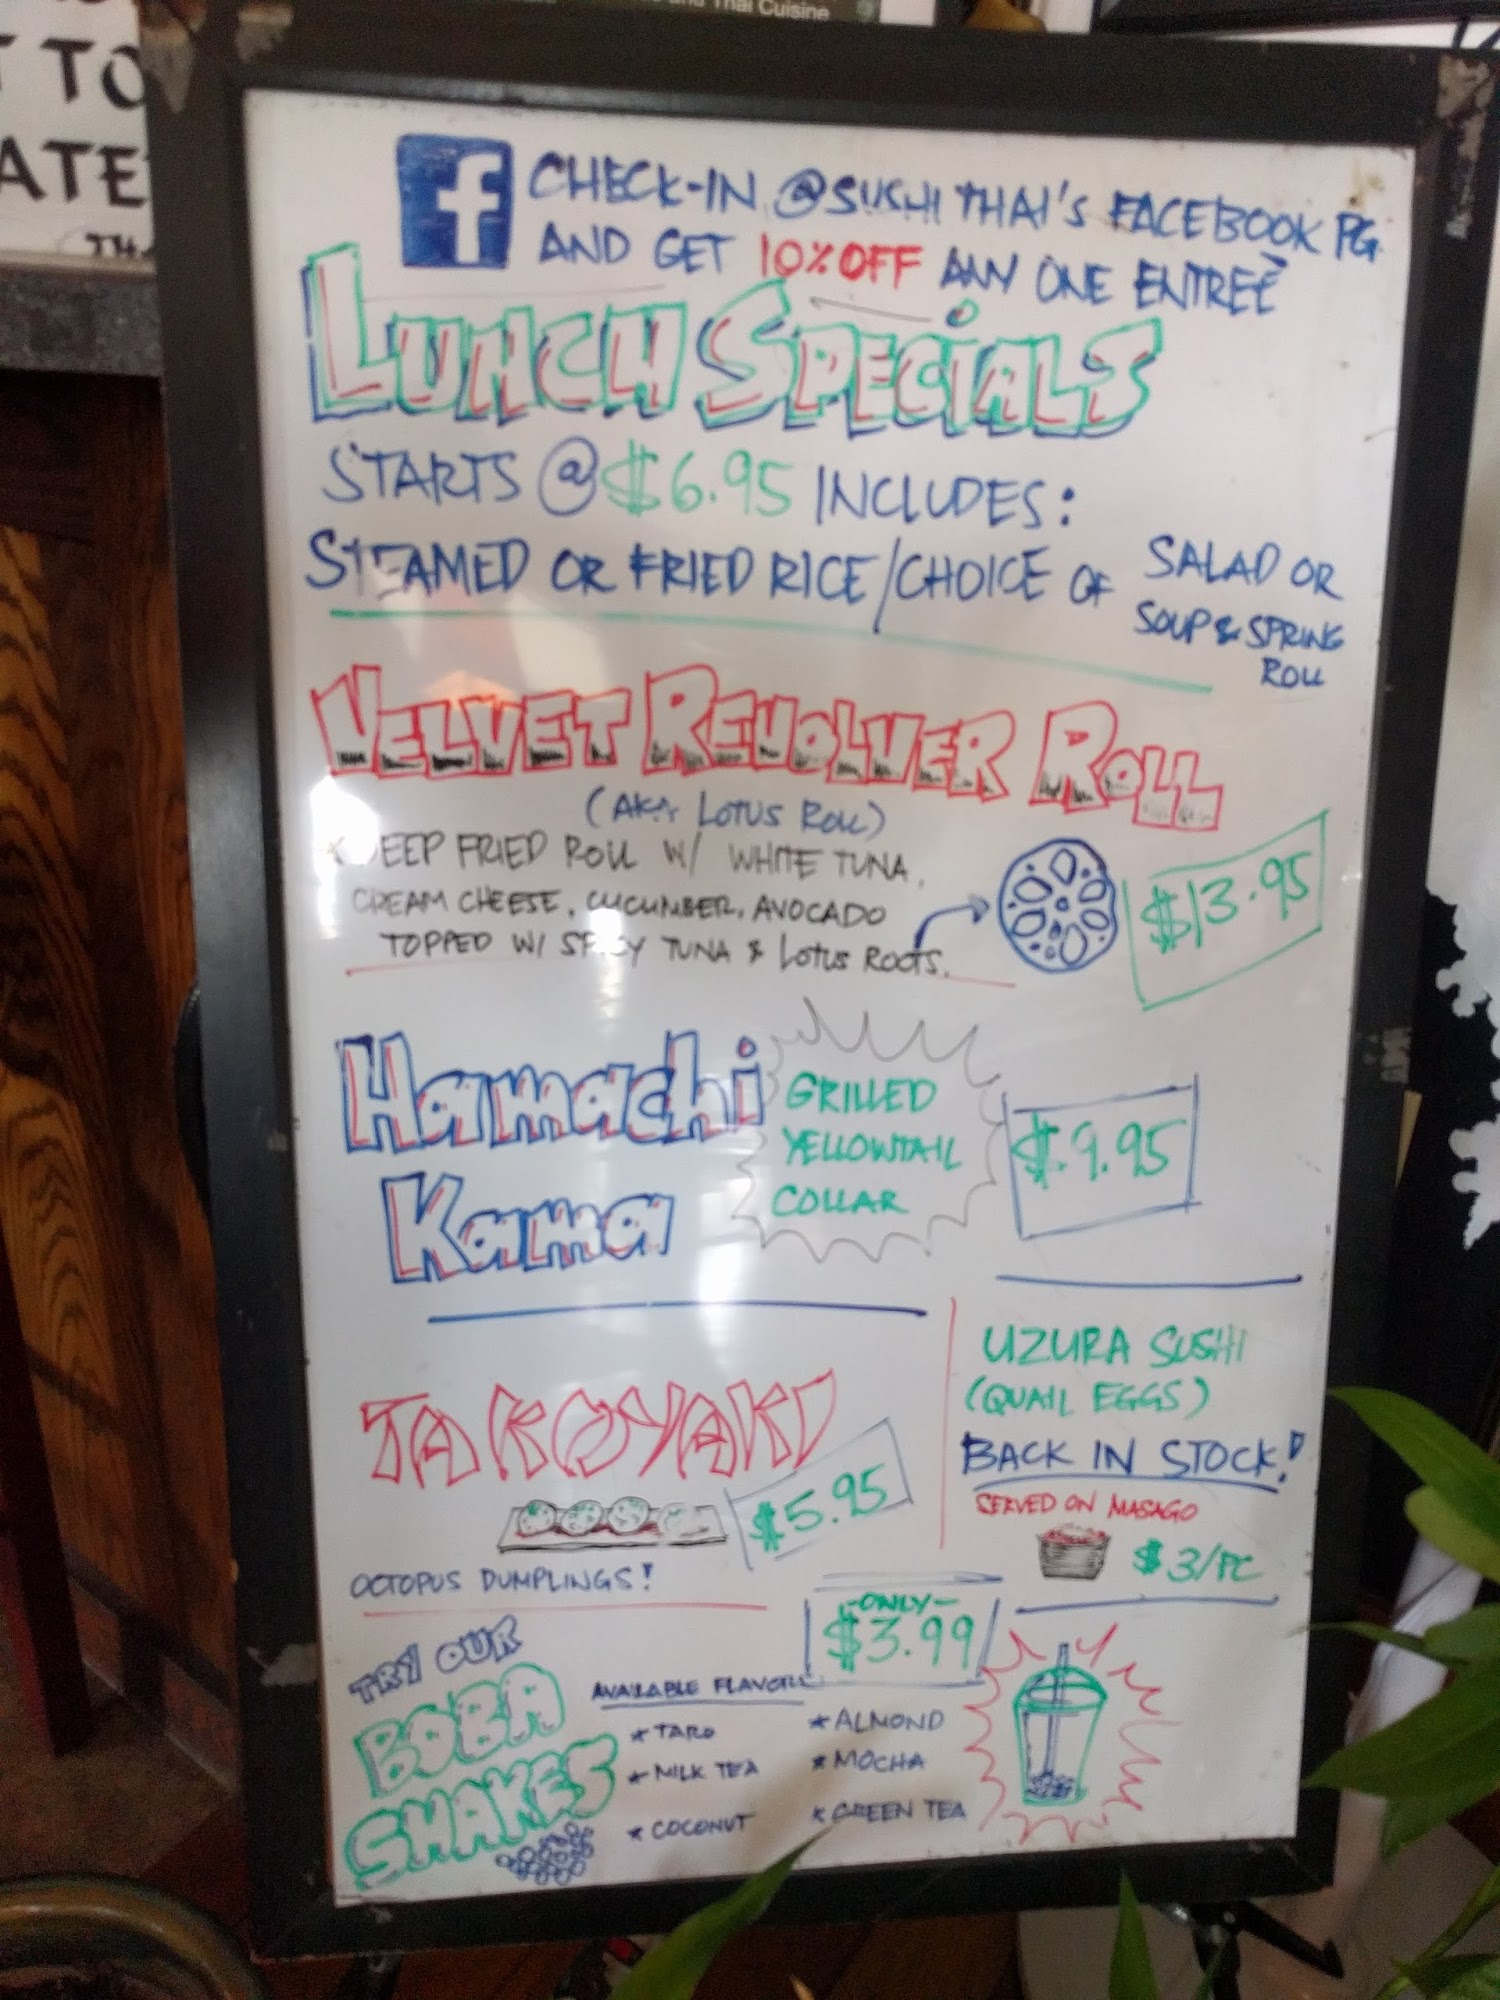 and Thai Cuisine
T TO
ATE
f CHECK-IN @SUSHI THAI'S FACEBOOK PG.
AND GET 10% OFF ANY ONE ENTREÈ
LUNCH SPECIALS
STARTS @ $6.95 INCLUDES:
STEAMED OR FRIED RICE/CHOICE OF SALAD OR
SOUP & SPRING
ROLL
VELVET REVOLVER ROLL
(AKA LOTUS ROLL)
DEEP FRIED ROLL W/ WHITE TUNA,
CREAM CHEESE, CUCUMBER, AVOCADO
TOPPED W/ SPICY TUNA & LOTUS ROOTS.
$13.95
Hamachi
Kama
GRILLED
YELLOWTAIL
COLLAR
$9.95
TAKOYAKI
$5.95
OCTOPUS DUMPLINGS!
UZURA SUSHI
(QUAIL EGGS)
BACK IN STOCK!
SERVED ON MASAGO
$3/PC
TRY OUR
BOBA
SHAKES
-ONLY-
$3.99
AVAILABLE FLAVORS
* TARO
* MILK TEA
* COCONUT
* ALMOND
* MOCHA
* GREEN TEA